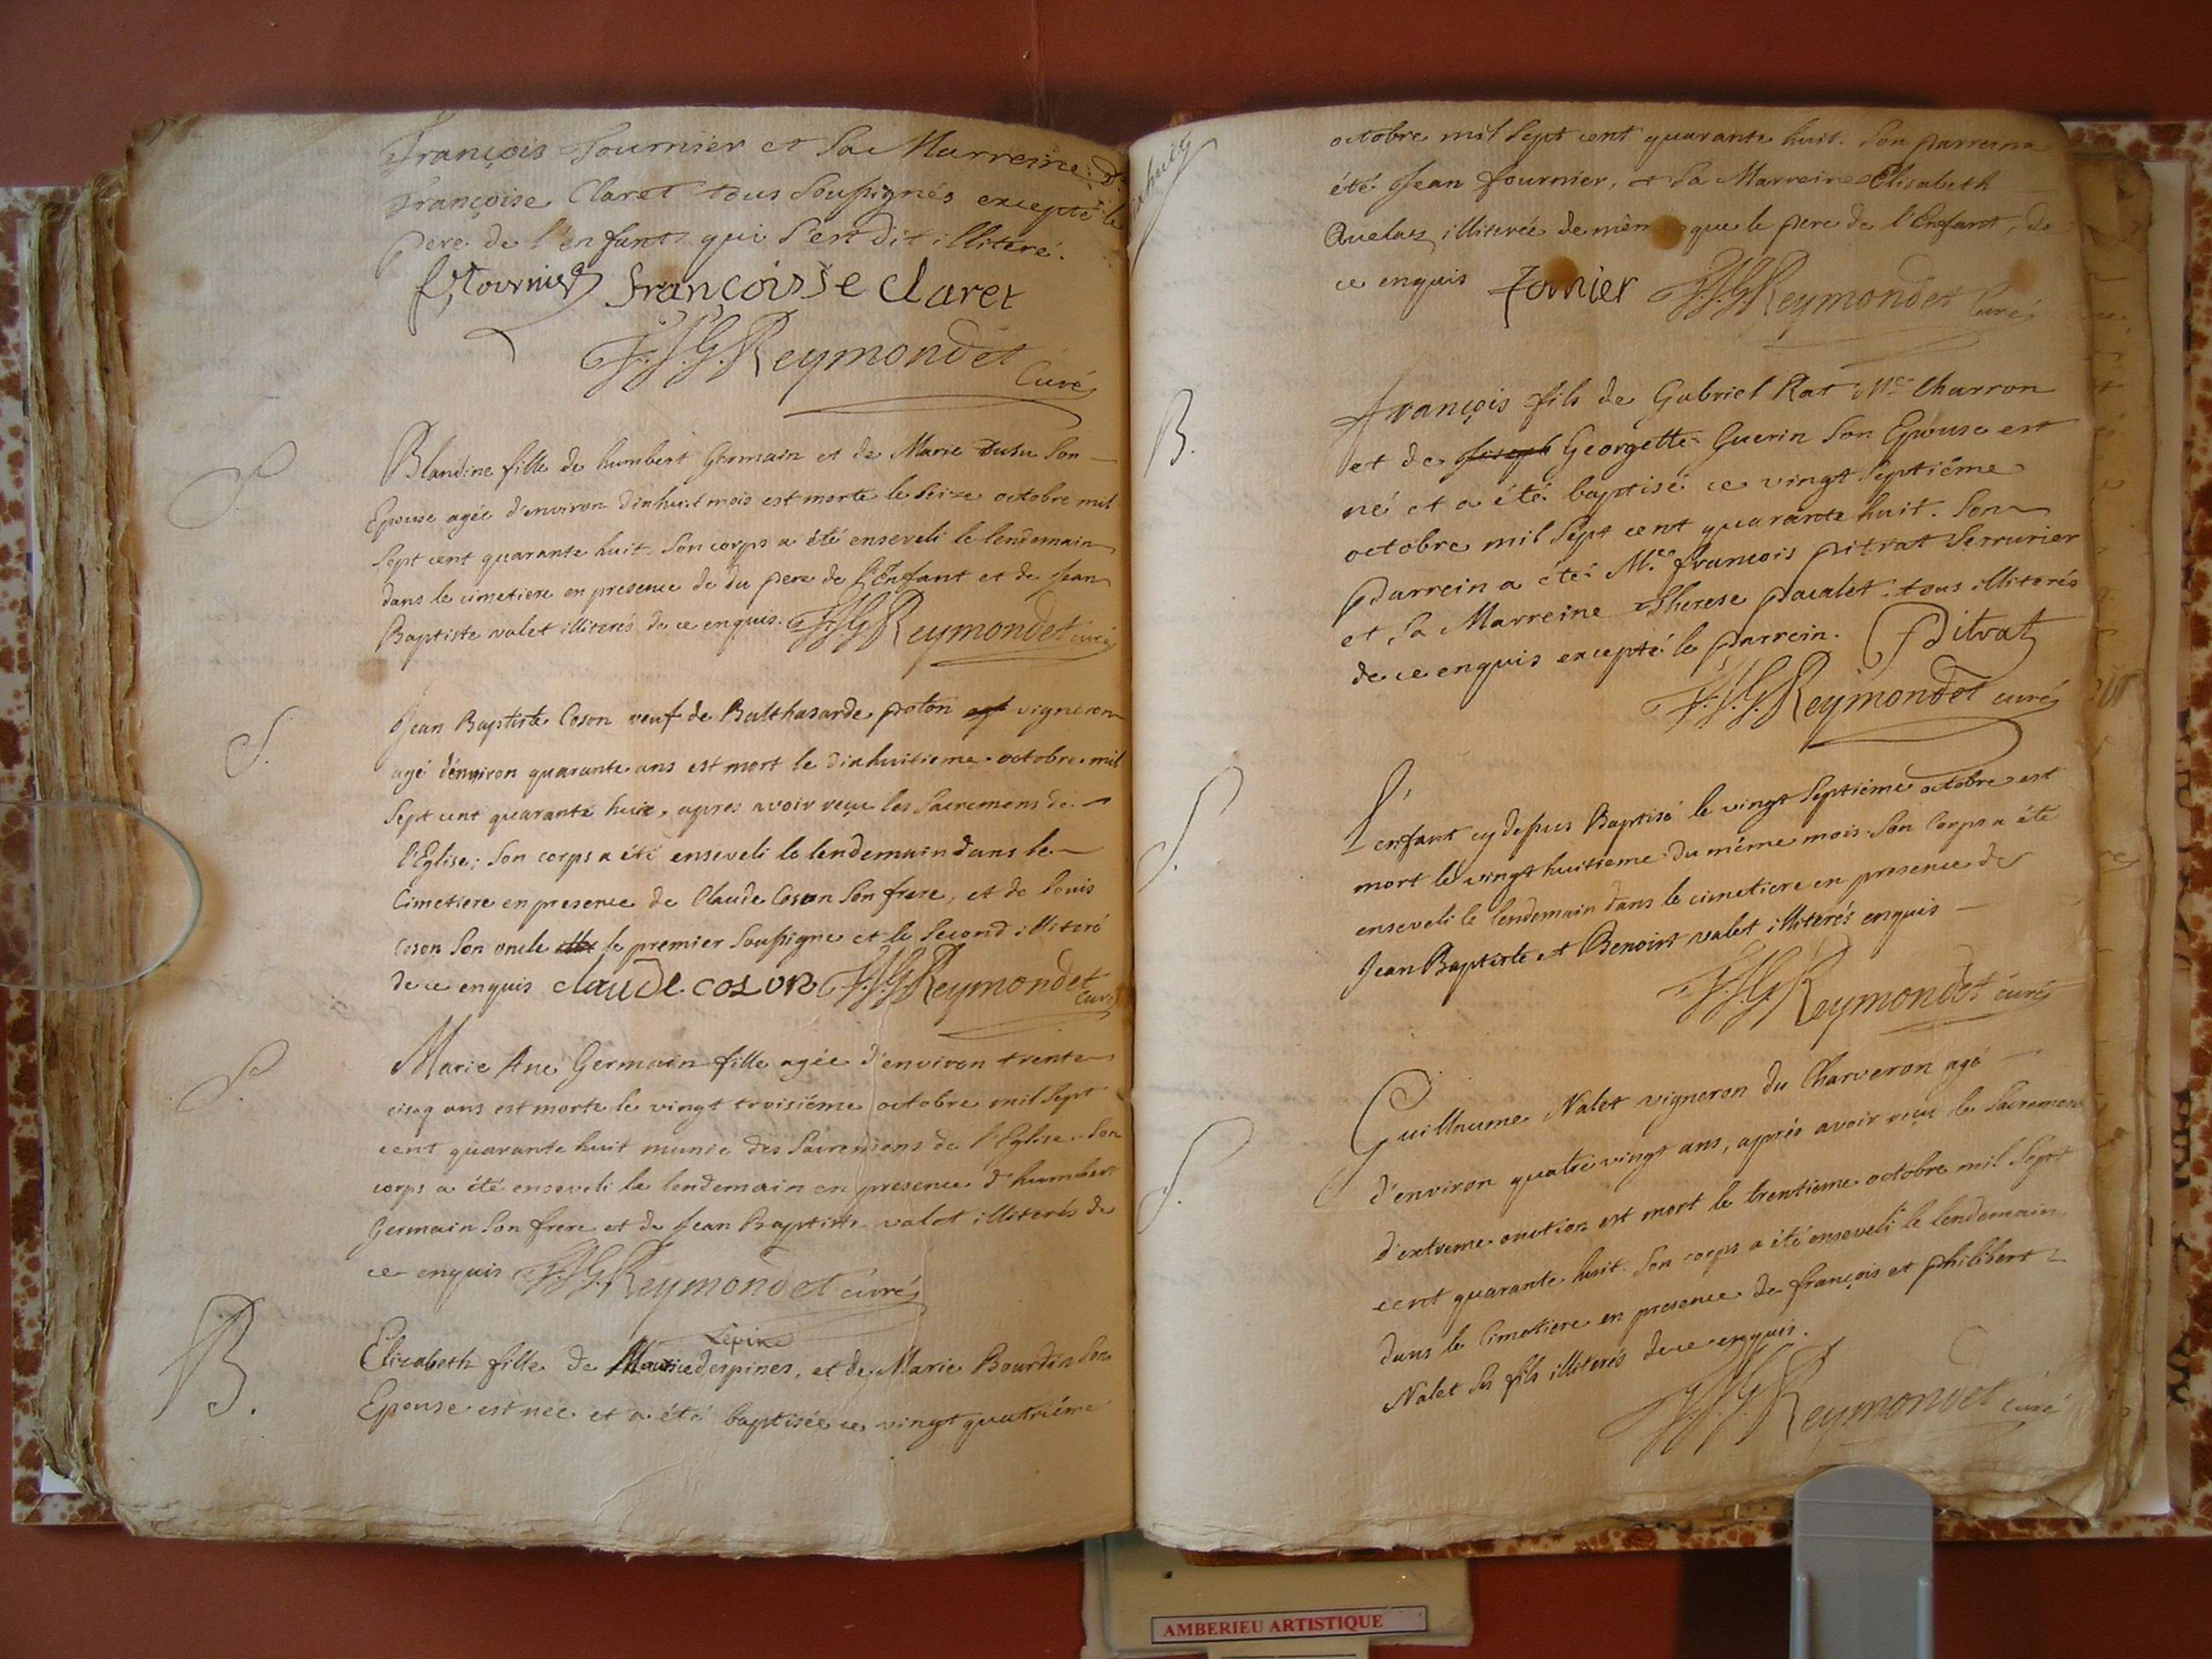 François Fournier et Sa Marreine D.
Françoise Claret tous Soussignés excepté le
pere de l'enfant qui S'est dit illiteré.
f. tournier francoisse claret
F.J.G. Reymondet
Curé
S.
Blandine fille de humbert Germain et de Marie Dusu Son
Epouse agée d'environ dixhuit mois est morte le Seize octobre mil
Sept cent quarante huit. Son corps a été enseveli le lendemain
dans le cimetiere en presence de du pere de l'Enfant et de Jean
Baptiste valet illiterés de ce enquis. F.J.G. Reymondet curé
S.
Jean Baptiste Coson veuf de Balthasarde poton vigneron
agé d'environ quarante ans est mort le dixhuitieme octobre mil
Sept cent quarante huit, apres avoir reçu les Sacremens de
l'Eglise; Son corps a été enseveli le lendemain dans le
Cimetiere en presence de Claude Coson Son frere, et de Louis
Coson Son oncle le premier Soussigné et le Second illiteré
de ce enquis claude coson F.J.G. Reymondet
Curé
S.
Marie Ane Germain fille agée d'environ trente
cinq ans est morte le vingt troisiéme octobre mil Sept
cent quarante huit munie des Sacremens de l'Eglise. Son
corps a été enseveli le lendemain en presence d'humbert
Germain Son frere et de Jean Baptiste valet illiterés de
ce enquis F.J.G. Reymondet curé
B.
Lepine
Elizabeth fille de Maurice despines, et de Marie Bourdin Son
Epouse est née et a été baptisée ce vingt quatriéme
octobre mil Sept cent quarante huit. Son parrein a
été Jean fournier, et Sa Marreine Elisabeth
illiterée de même que le pere de l'Enfant, de
ce enquis Fornier F.J.G. Reymondet Curé
B.
François fils de Gabriel Rat Me. Charron
et de Joseph Georgette Guerin Son Epouse est
né et a été baptisé ce vingt Septiéme
octobre mil Sept cent quarante huit. Son
parrein a été Me. françois pitrat Serrurier
et Sa Marreine Therese pacalet tous illiterés
de ce enquis excepté le parrein. Pitrat
F.J.G. Reymondet curé
S.
L'enfant cy dessus Baptisé le vingt Septiéme octobre est
mort le vingt huitieme du même mois. Son Corps a été
enseveli le lendemain dans le cimetiere en presence de
Jean Baptiste et Benoist valet illiterés enquis
F.J.G. Reymondet curé
S.
Guillaume Nalet vigneron du Charveron agé
d'environ quatre vingt ans, après avoir reçu le Sacrement
d'extreme onction est mort le trentieme octobre mil Sept
cent quarante huit. Son corps a été enseveli le lendemain
dans le Cimetiere en presence de françois et philibert
Nalet Ses fils illiterés de ce enquis.
F.J.G. Reymondet curé
AMBERIEU ARTISTIQUE